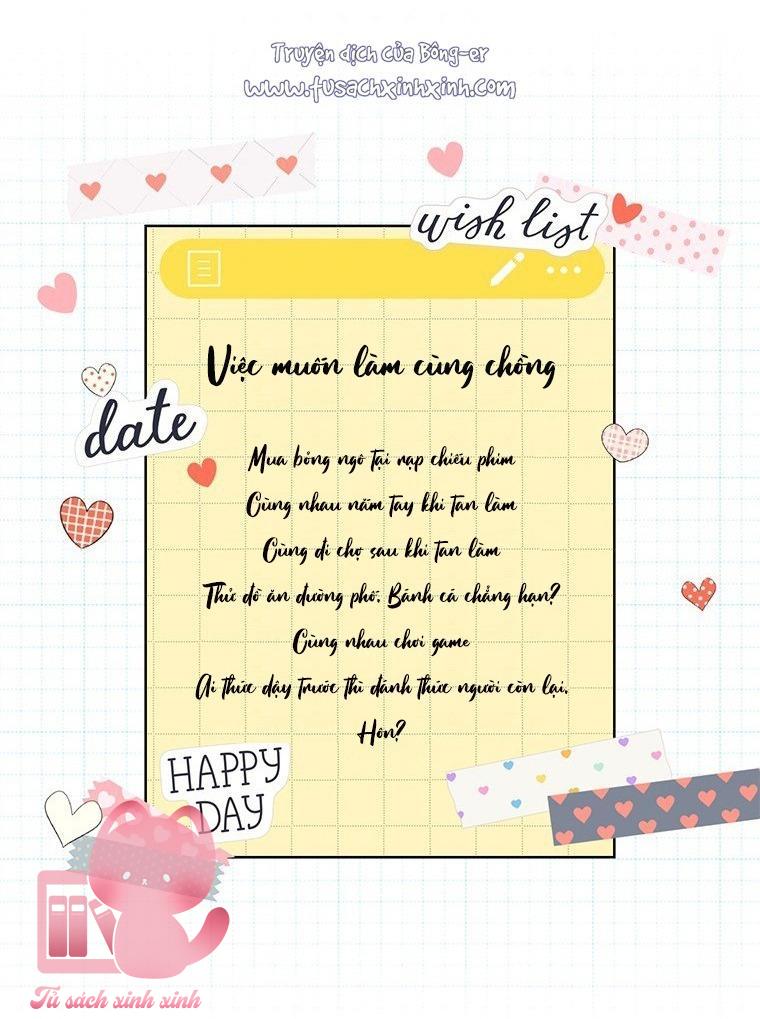 Truyện dịch của Bông-er
www.tusachxinhxinh.com
wish list
Việc muốn làm cùng chồng
date
Mua bỏng ngô tại rạp chiếu phim
Cùng nhau nắm tay khi tan làm
Cùng đi chợ sau khi tan làm
Thử đồ ăn đường phố. Bánh cá chẳng hạn?
Cùng nhau chơi game
Ai thức dậy trước thì đánh thức người còn lại.
Hôn?
HAPPY
DAY
Tủ sách xinh xinh